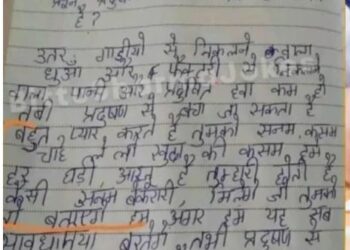 है?
उतर गाड़ीयो से निकलने वाला
धुआ और फैक्टरी से निकलने
वाला पानी और प्रदुषित हवा कम हो
तभी प्रदुषण से बचा जा सकता है
बहुत प्यार करते है तुमको सनम, कसम
चाहे ले लो खुदा की कसम हमे
हर घड़ी आरजु है तुम्हारी होती है
कैसी सनम बेकरारी, मिलेगे जो तुमको
तो बताएगे हम अगर हम यह सब
सावधानिया बरतेगे तभी प्रदुषण से